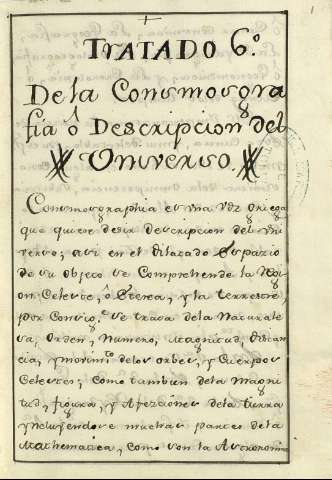 Tratado 6.º
De la Consmogra
fia ô Descripcion del
Universo.
Consmographia es vna voz Griega
que quiere desir descripcion del Vni
verso; asi en el dilatado Espazio
de su objeto se Comprehende la Regi
on Celeste, ô Eterea, y la terrestre,
por Consig.te se trata de la Naturale
sa, Orden, Numero, Magnitud, distan
cia, y movim.to de los orbes, y Cuerpos
Celestes; Como tambien de la Magni
tud, figura, y Afeziones de la tierra
yncluyendose muchas partes de la
Mathematica, como son la Astronomia